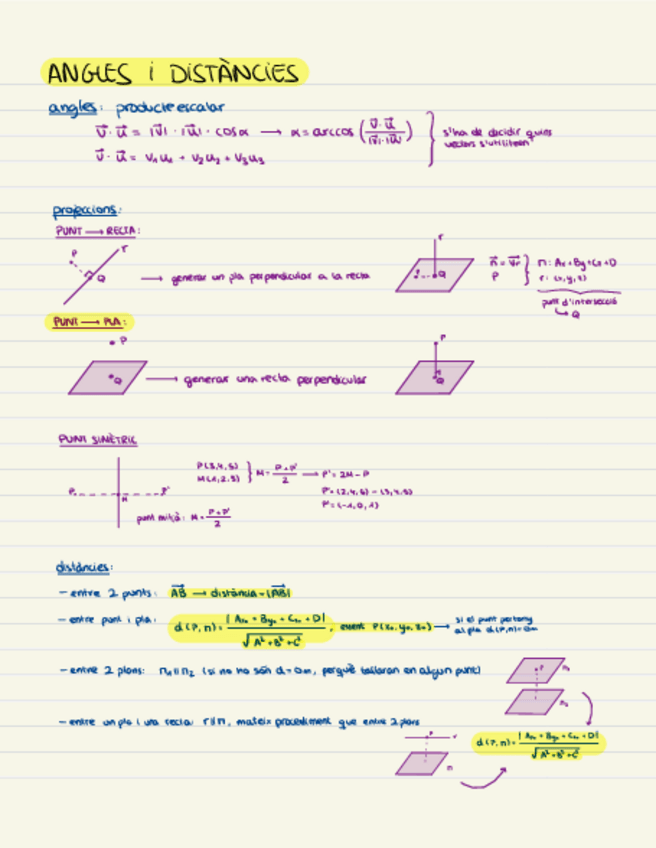 ANGLES i DISTÀNCIES
angles: producte escalar
v⃗ · u⃗ = |v⃗| · |u⃗| · cosα → α = arccos (v⃗ · u⃗ / |v⃗| · |u⃗|)
v⃗ · u⃗ = v₁u₁ + v₂u₂ + v₃u₃
s'ha de decidir quins
vectors s'utilitzen
projeccions:
PUNT → RECTA:
P r
Q
→ generar un pla perpendicular a la recta
r
Q
n⃗ = v⃗r
P
π: Ax+By+Cz+D
r: (x,y,z)
punt d'intersecció
↳ Q
PUNT → PLA:
P
Q
→ generar una recta perpendicular
P
Q
PUNT SIMÈTRIC
P M P'
punt mitjà: M = P + P' / 2
P(3,4,5)
M(1,2,3)
M = P + P' / 2 → P' = 2M - P
P' = (2,4,6) - (3,4,5)
P' = (-1,0,1)
distàncies:
- entre 2 punts: AB⃗ → distància = |AB⃗|
- entre punt i pla: d(P,π) = |Ax₀ + By₀ + Cz₀ + D| / √A² + B² + C², essent P(x₀, y₀, z₀) → si el punt pertany
al pla d(P,π) = 0m
- entre 2 plans: π₁ || π₂ (si no ho són d = 0m, perquè tallaran en algun punt)
P π₁
π₂
- entre un pla i una recta: r || π, mateix procediment que entre 2 plans
P r
π
d(P,π) = |Ax₀ + By₀ + Cz₀ + D| / √A² + B² + C²